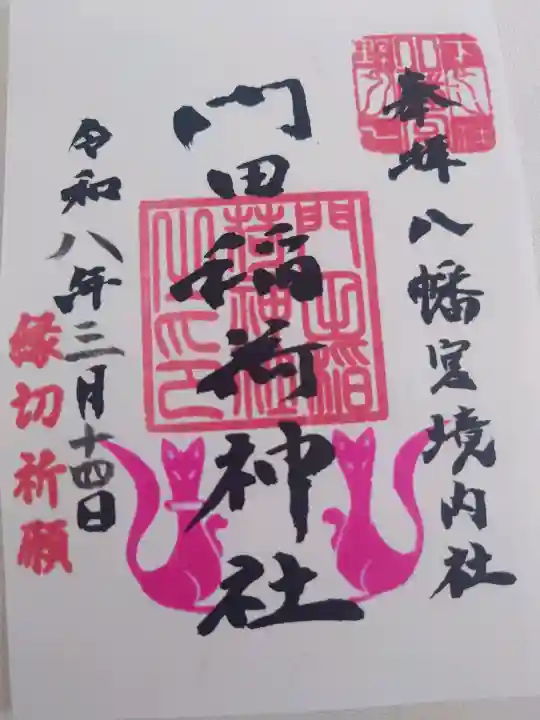 奉拝 八幡宮境内社
門田稲荷神社
令和八年三月十四日
縁切祈願